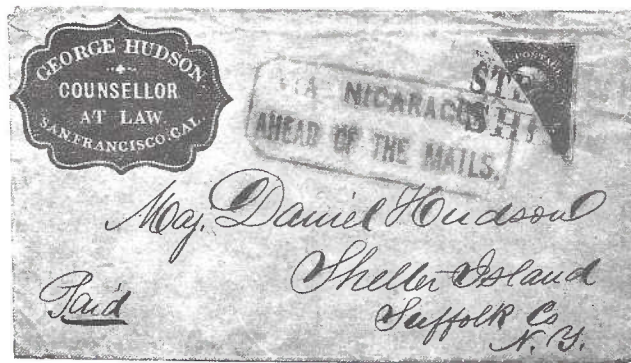 GEORGE HUDSON.
COUNSELLOR
AT LAW
SAN FRANCISCO, CAL.
POSTAGE
STE
SHI
VIA NICARAGU
AHEAD OF THE MAILS.
Maj. Daniel Hudson
Shelter Island
Suffolk Co
N. Y.
Paid